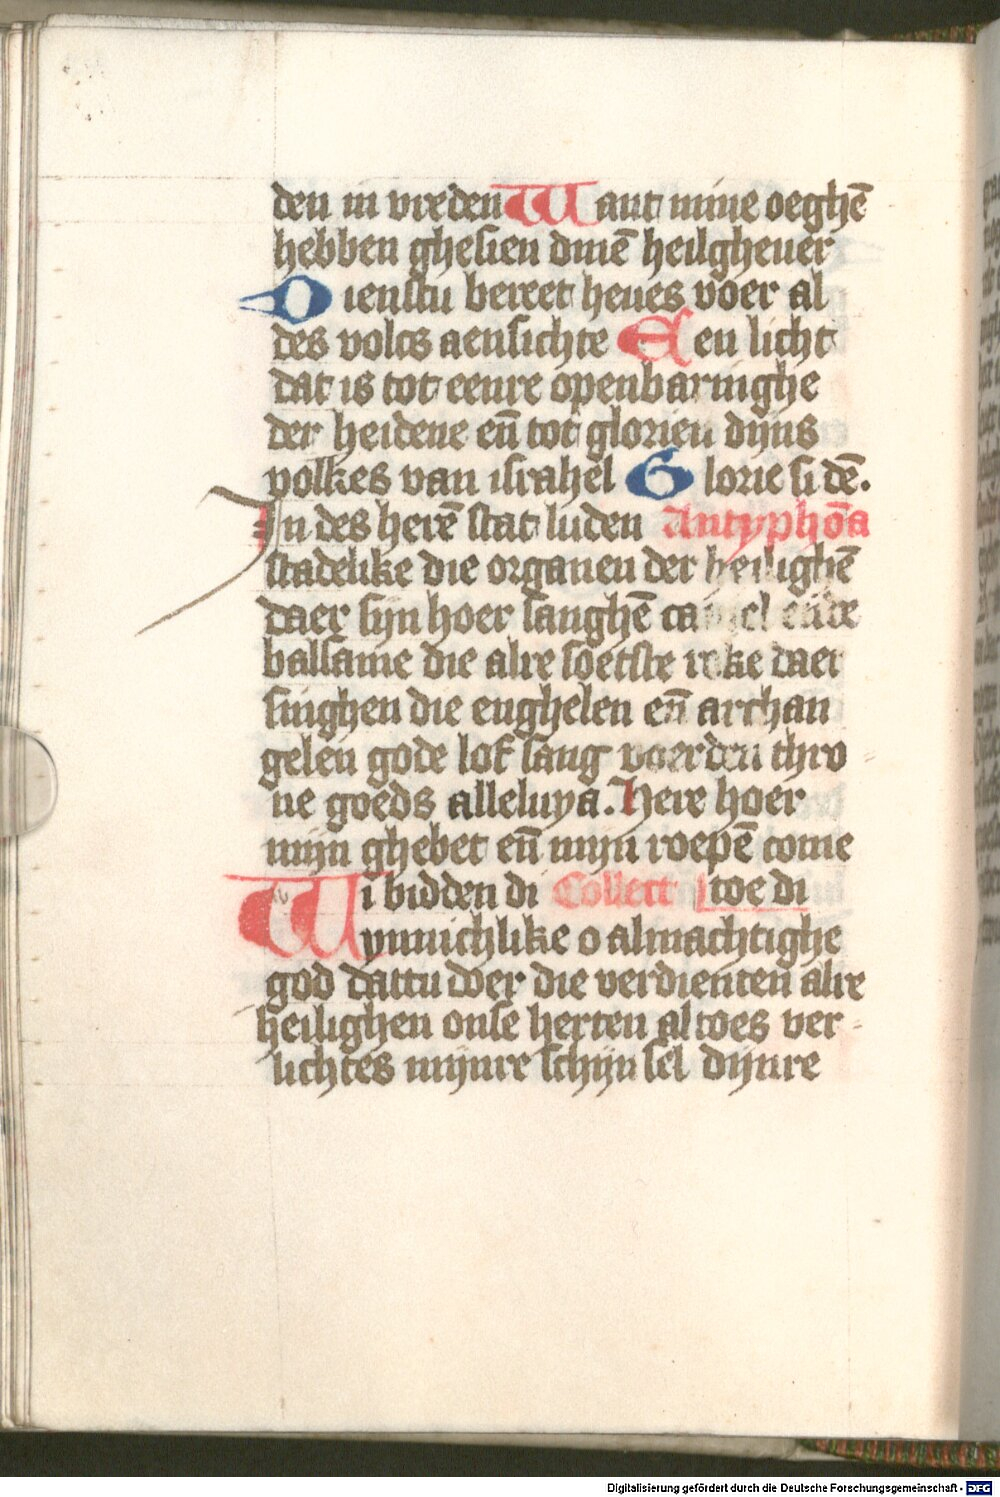 den in vreden Want mine oeghē
hebben ghesien dinē heilghever
Dienstu bereet heves voer al
des volcs aensichte Een licht
dat is tot eenre openbaringhe
der heidene eñ tot glorien dijns
volkes van israhel Glorie si dē.
In des herē stat luden Antyphōa
stadelike die organen der heilighē
daer sijn hoer sanghē caneel ende
balsame die alre soetste roke daer
singhen die enghelen eñ archan
gelen gode lof sang voer den thro
ne goeds alleluya. Here hoer
mijn ghebet eñ mijn roepē come
Wi bidden di Collect toe di
ynnichlike o almachtighe
god dattu over die verdienten alre
heilighen onse herten altoes ver-
lichtes mijnre schijnsel dijnre
Digitalisierung gefördert durch die Deutsche Forschungsgemeinschaft - DFG